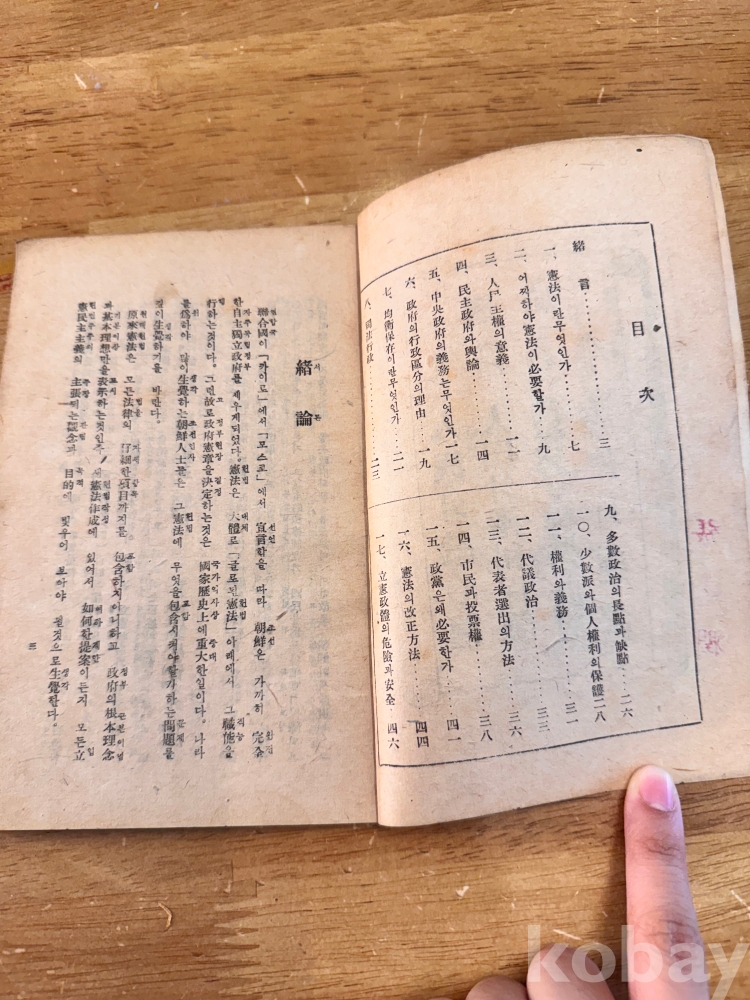 目次
緒言 ............ 三
一、憲法이란무엇인가 ............ 七
二、어찌하야憲法이必要할가 ............ 九
三、人民主權의意義 ............ 一二
四、民主政府와輿論 ............ 一四
五、中央政府의義務는무엇인가 一七
六、政府의行政區分의理由 ...... 一九
七、均衡保存이란무엇인가 ...... 二一
八、司法行政 ............ 二三
九、多數政治의長點과缺點 ...... 二六
一〇、少數派와個人權利의保證 二八
一一、權利와義務 ............ 三一
一二、代議政治 ............ 三六
一三、代表者選出의方法 ............ 三八
一四、市民과投票權 ............ 四一
一五、政黨은왜必要한가 ............ 四四
一六、憲法의改正方法 ............ 四四
一七、立憲政體의危險과安全 ... 四六
緒論
서론
聯合國이「카이로」에서「모스코」에서 宣言함을 따라 朝鮮은 가까히 完全
한自主獨立政府를 세우게되었다。憲法은 大體로「글로된憲法」아래에서 그職能을
行하는것이다。그런故로政府憲章을決定하는것은 國家歷史上에重大한일이다。나라
를爲하야 많이生覺하는朝鮮人士들은 그憲法에 무엇을包含시켜야할가하는問題를
깊이生覺하기를 바란다。
原來憲法은 모든法律의 仔細한項目까지를 包含하지아니하고 政府의根本理念
과基本理想만을表示하는것인즉 憲法作成에 있어서 如何한提案이든지 모든立
憲民主主義의 主張되는觀念과 目的에 맞우어 보아야 될것으로生覺한다。
三
kobay